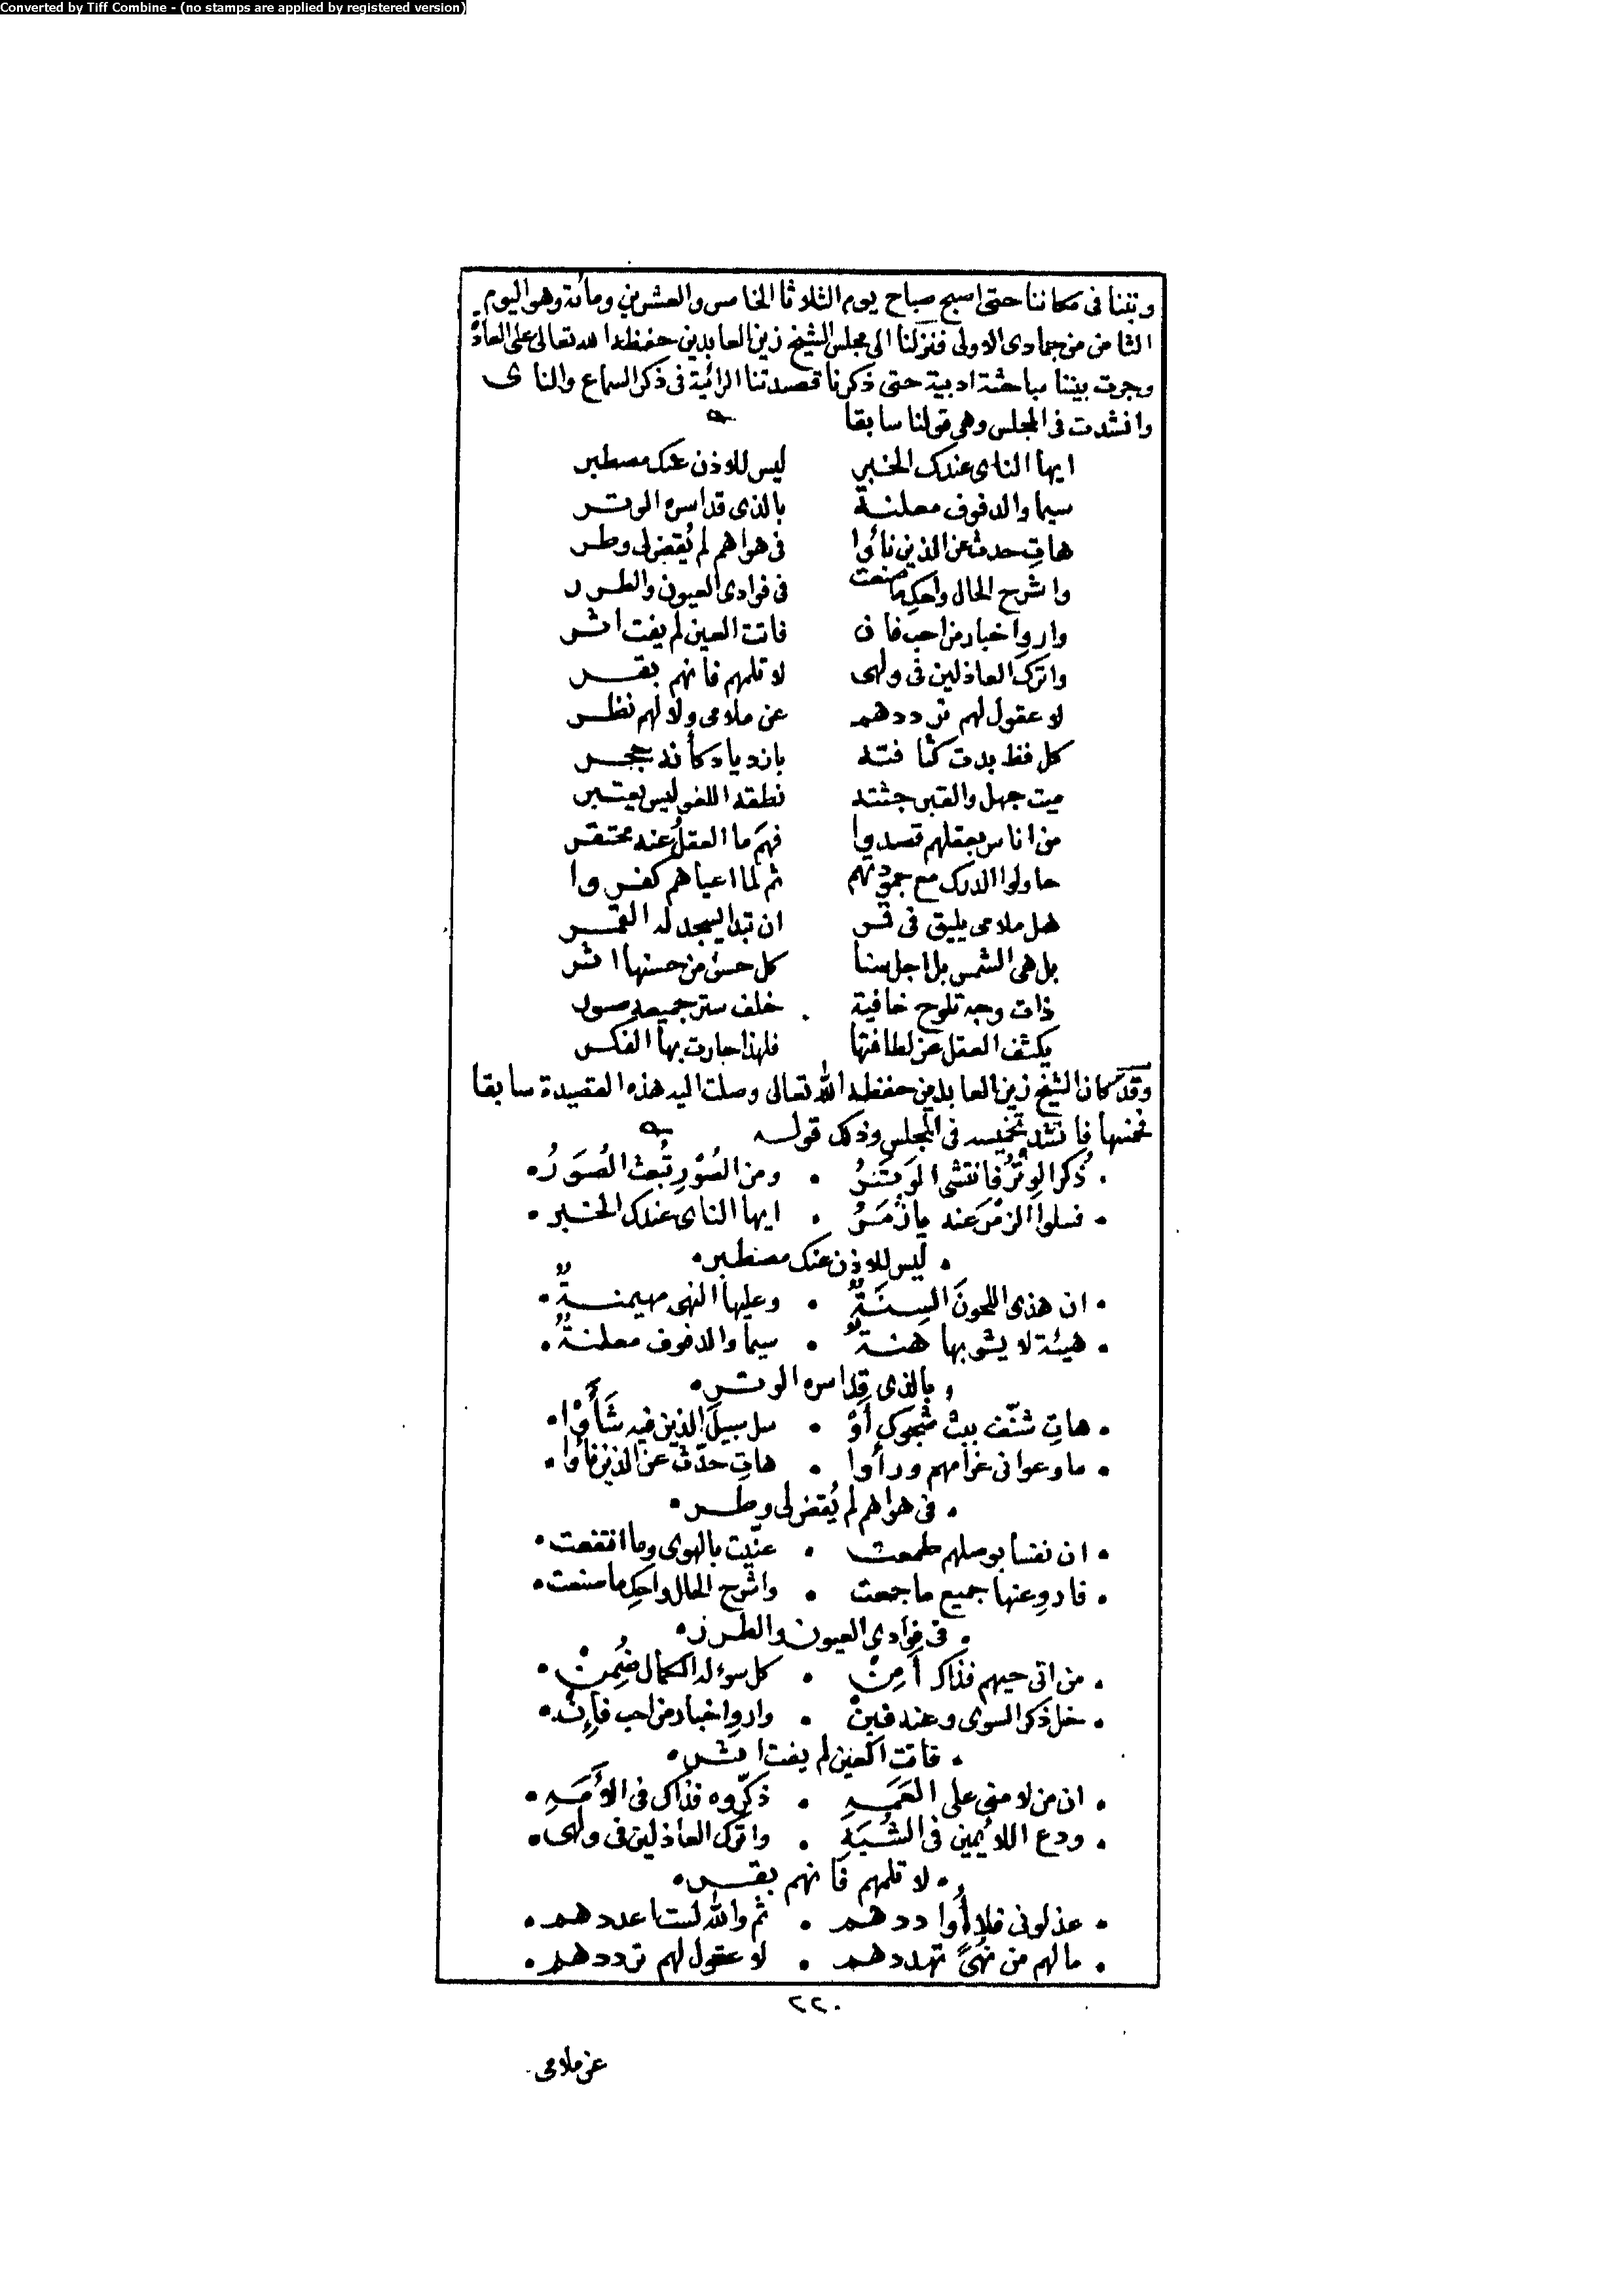 Converted by Tiff Combine - (no stamps are applied by registered version)
وبتنا فى مكاننا حتى اصبح صباح يوم الثلاثا الخامس والعشرين ومائة وهو اليوم
الثامن من جمادى الاولى فنزلنا الى مجلس الشيخ زين العابدين حفظه الله تعالى على العادة
وجرت بيننا مباحثة ادبية حتى ذكرنا قصيدتنا الرائية فى ذكر السماع والناى
وانشدت فى المجلس وهى قولنا سابقا
ايها الناى عندك الخبر ليس للاذن عنك مصطبر
سيما والدفوف معلنة بالذى قد اسره الوتر
هات حدث عن الذين نأوا فى هواهم لم يُقض لى وطر
واشرح الحال واحكِ ما صنعت فى فوادى العيون والطرر
واروِ اخبار من احب فان فاتت العين لم يفت اثر
واترك العاذلين فى ولهى لا تلمهم فانهم بقر
لا عقول لهم ترددهم عن ملامى ولا لهم نظر
كل فظ بدت كثافته بازدياد كأنه حجر
ميت جهل والقبر جثته نطقه اللغو ليس يعتبر
من اناس بعقلهم قصدوا فهمَ ما العقلُ عنه محتقر
حاولوا الدرك مع جمودتهم ثم لما اعياهم كفروا
هل ملامى يليق فى قمر ان تبدا يسجد له القمر
بل هى الشمس بل اجل سنا كل حسن من حسنها اثر
ذات وجه تلوح خافية خلف ستر جميعه صور
يكثف العقل عن لطافتها فلهذا حارت بها الفكر
وقد كان الشيخ زين العابدين حفظه الله تعالى وصلت اليه هذه القصيدة سابقا
فخمسها فانشد تخميسه فى المجلس وذلك قوله
• ذُكر الوِتْرُ فانتشى الوَتَرُ • ومن الصُوْرِ تُبعث الصُوَرُ •
• فسلوا الزمْرَ عنه يا زُمَرُ • ايها الناى عندك الخبر •
• ليس للاذن عنك مصطبر •
• ان هذى اللحونَ السِنَةٌ • وعليها النهى مهيمنةٌ •
• هيئة لا يشوبها هنةٌ • سيما والدفوف معلنةٌ •
• بالذى قد اسره الوتر •
• هاتِ شنّف ببث شجوك أوْ • سل سبيل الذين فيه شَأَوْا •
• ما وعوا فى غرامهم ورأوا • هاتِ حدّث عن الذين نأوا •
• فى هواهم لم يُقض لى وطر •
• ان نفسا بوصلهم طمعت • عنّيت بالهوى وما انتفعت •
• فاروِ عنها جميع ما جمعت • واشرح الحال واحكِ ما صنعت •
• فى فوادى العيون والطرر •
• من اتى حيهم فذاك أمِنْ • كل سوء له الكمال ضُمِنْ •
• خل ذكر السوى وعنه فبِنْ • واروِ اخبار من احب فإِنْ •
• فاتت العين لم يفت اثر •
• ان من لامنى على العَمَهِ • ذكّروه فذاك فى الأَمَهِ •
• ودع اللائمين فى الشُبَهِ • واترك العاذلين فى ولهى •
• لا تلمهم فانهم بقر •
• عذلونى فلا أُواددهم • ثم والله لست اعددهم •
• ما لهم من نُهىً تهددهم • لا عقول لهم ترددهم •
٢٢٠
عن ملامى